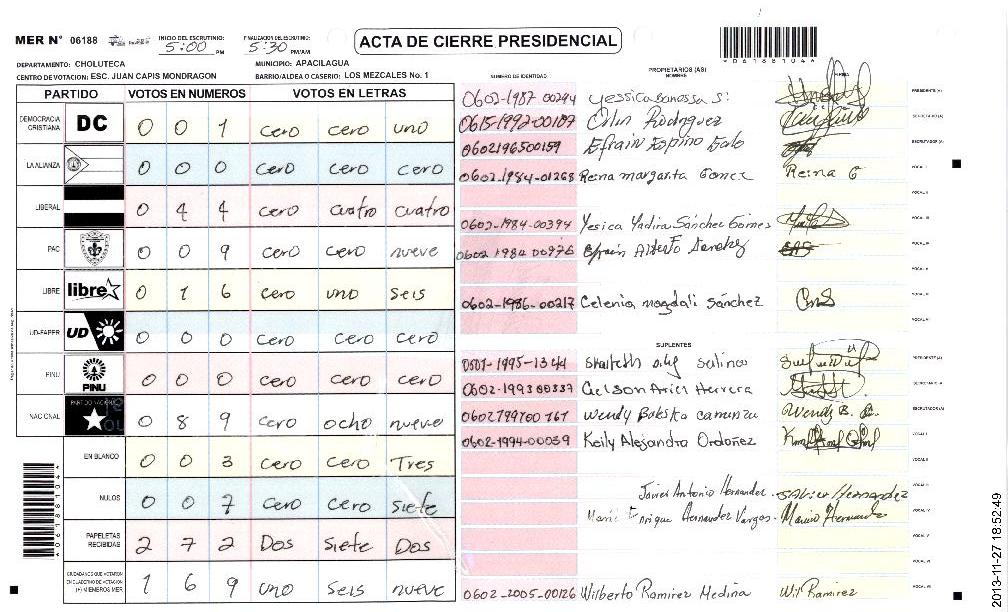 MER N° 06188
INICIO DEL ESCRUTINIO: 5:00 PM
FINALIZACION DEL ESCRUTINIO: 5:30 PM/AM
ACTA DE CIERRE PRESIDENCIAL
*06188104*
DEPARTAMENTO: CHOLUTECA
MUNICIPIO: APACILAGUA
CENTRO DE VOTACION: ESC. JUAN CAPIS MONDRAGON
BARRIO/ALDEA O CASERIO: LOS MEZCALES No. 1
PARTIDO VOTOS EN NUMEROS VOTOS EN LETRAS
DEMOCRACIA CRISTIANA DC 0 0 1 cero cero uno
LA ALIANZA 0 0 0 cero cero cero
LIBERAL 0 4 4 cero cuatro cuatro
PAC 0 0 9 cero cero nueve
LIBRE libre 0 1 6 cero uno seis
UD-FAPER UD 0 0 0 cero cero cero
PINU PINU 0 0 0 cero cero cero
NACIONAL PARTIDO NACIONAL 0 8 9 cero ocho nueve
EN BLANCO 0 0 3 cero cero Tres
NULOS 0 0 7 cero cero siete
PAPELETAS RECIBIDAS 2 7 2 Dos siete Dos
CIUDADANOS QUE VOTARON EN CUADERNO DE VOTACION (+) MIEMBROS MER 1 6 9 uno seis nueve
*06188104*
NUMERO DE IDENTIDAD
PROPIETARIOS (AS)
NOMBRE
FIRMA
0602-1987-00294 PRESIDENTE (A)
0615-1992-00107 Rodriguez SECRETARIO (A)
0602196500159 Efrain Espino ESCRUTADOR (A)
0602-1984-01268 Reina margarita Gomez Reina G VOCAL I
VOCAL II
0602-1984-00394 Yesica Yadira Sánchez Gomes VOCAL III
0602 1984 00976 Efrain Alberto Sanchez VOCAL IV
VOCAL V
0602-1986-00217 Celenia magdali sánchez VOCAL VI
VOCAL VII
SUPLENTES
0501-1995-1344 PRESIDENTE (A)
0602-199300337 Gelson Herrera SECRETARIO A
Wendy Wendy B. ESCRUTADOR (A)
0602-1994-00039 Keily Alejandra Ordoñez VOCAL I
VOCAL II
Javier Antonio Hernandez Javier Hernandez VOCAL III
Enrique Hernandez Vargas Mario Hernandez VOCAL IV
VOCAL V
VOCAL VI
0602-2005-00126 Wilberto Ramirez Medina Wil Ramirez VOCAL VII
2013-11-27 18:52:49